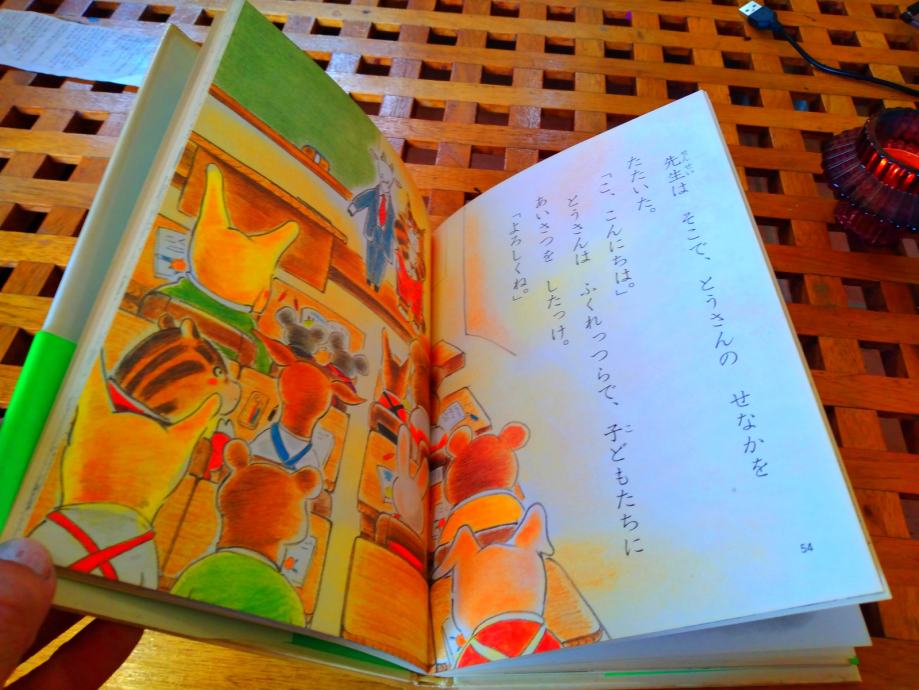 先生は　そこで、とうさんの　せなかを
たたいた。
「こ、こんにちは。」
とうさんは　ふくれっつらで、子どもたちに
あいさつを　したっけ。
「よろしくね。」
54